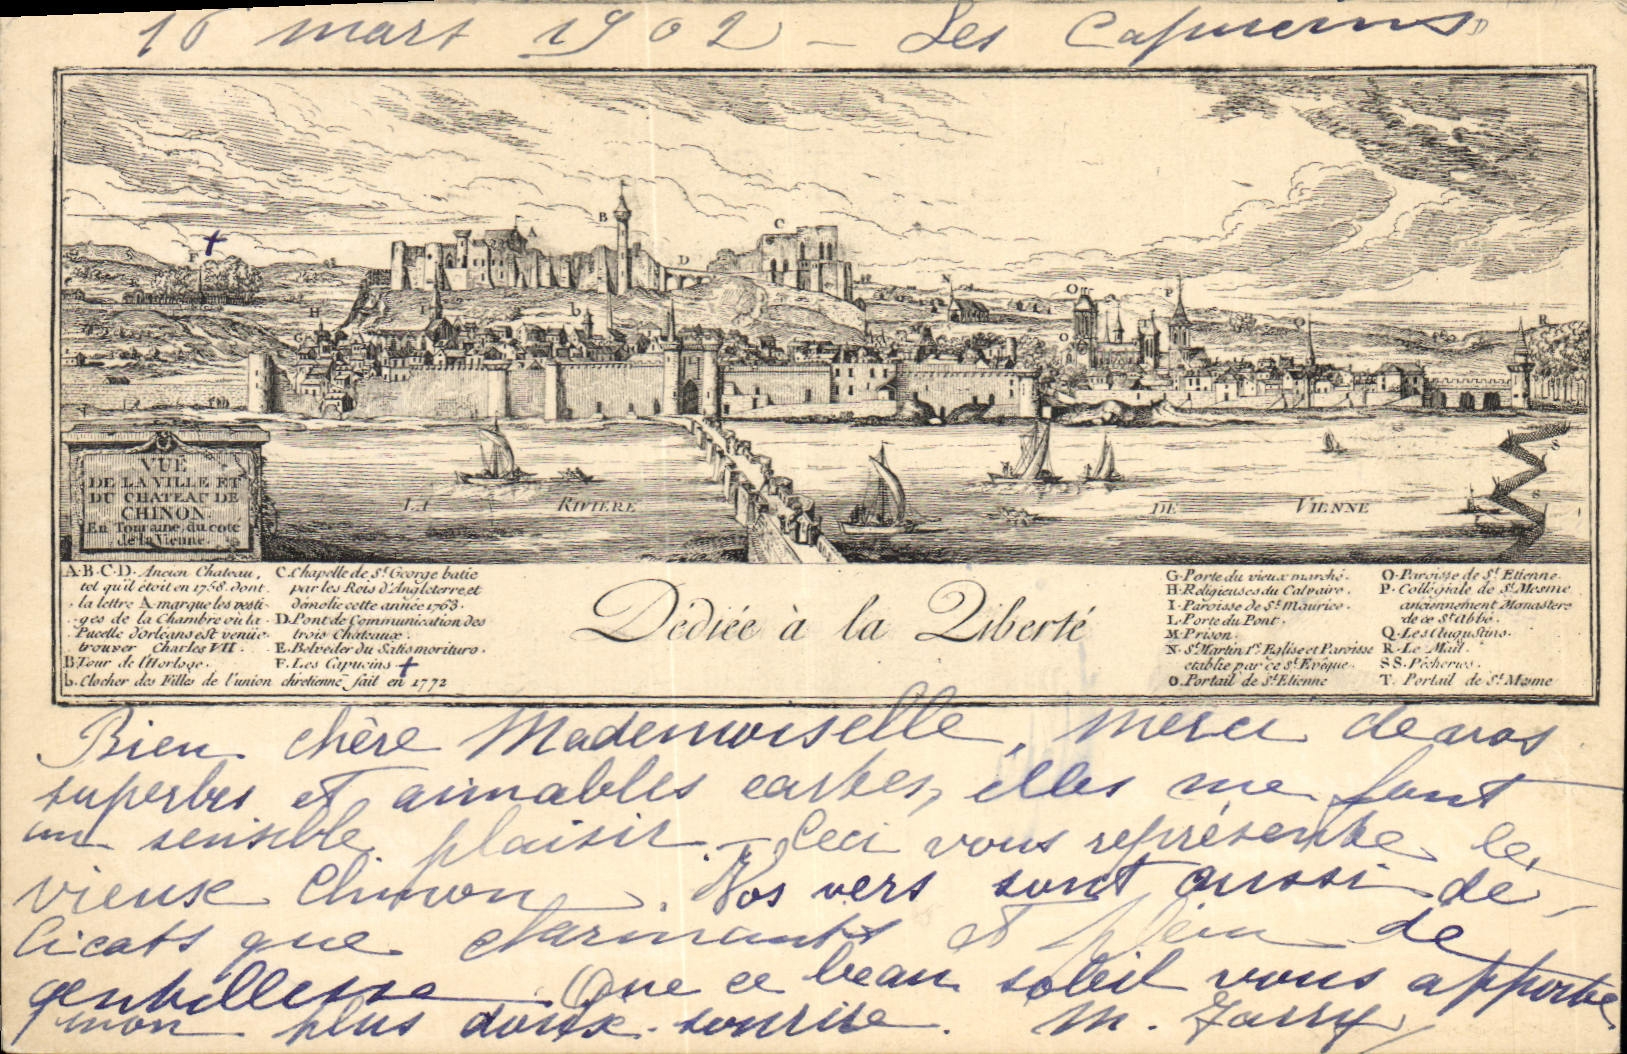 16 mars 1902 — Les Capucins
A
B
C
D
F
H
G
b
N
O
O
P
Q
R
S
S
VUE
DE LA VILLE ET
DU CHATEAU DE
CHINON.
En Touraine, du coté
de la Vienne.
LA RIVIERE DE VIENNE
A·B·C·D. Ancien Chateau,
tel qu'il étoit en 1758. dont
la lettre A marque les vesti-
ges de la Chambre où la
Pucelle d'orleans est venüe
trouver Charles VII.
B. Tour de l'Horloge.
b. Clocher des Filles de l'union chretienne fait en 1772
C. Chapelle de St. George batie
par les Rois d'Angleterre, et
démolie cette année 1763.
D. Pont de Communication des
trois Chateaux.
E. Belveder du Satis morituro.
F. Les Capucins
Dédiée à la Liberté
G. Porte du vieux marché.
H. Religieuses du Calvaire.
I. Paroisse de St. Maurice.
L. Porte du Pont.
M. Prison.
N. St. Martin 1re. Eglise et Paroisse
etablie par ce St. Evêque.
O. Portail de St. Etienne
O. Paroisse de St. Etienne.
P. Collégiale de St. Mesme
anciennement Monastere
de ce St. abbé.
Q. Les Augustins.
R. Le Mail.
SS. Pécheries.
T. Portail de St. Mesme
Bien chère Mademoiselle, merci de vos
superbes et aimables cartes, elles me font
un sensible plaisir — Ceci vous représente le
vieux Chinon. Vos vers sont aussi dé-
licats que charmants et plein de
gentillesse. Que ce beau soleil vous apporte
mon plus doux sourire. M. Jarry